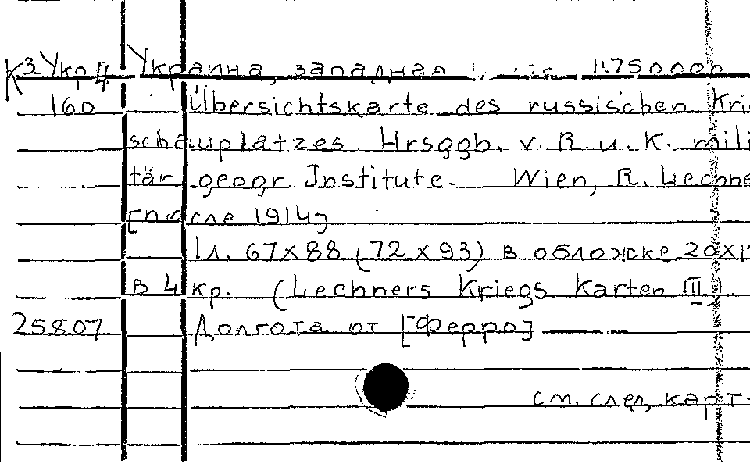 К3Укр4 Украина, западная 1:750000
160 Übersichtskarte des russischen Krie
schauplatzes Hrsggb. v. R u. K. mili
tär geogr Institute. Wien, R. Lechne
[после 1914]
1л. 67x88 (72x93) в обложке 20x1
в 4 кр. (Lechners Kriegs Karten III)
25807 Долгота от [Ферро]
см. след карт